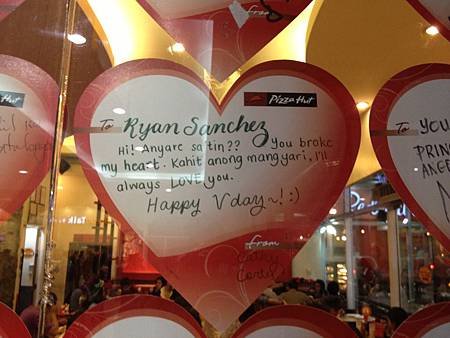 Pizza Hut
To Ryan Sanchez
Hi! Anyare satin?? You broke
my heart. Kahit anong mangyari, I'll
always LOVE you.
Happy Vday~! :)
From
Cathy
Hut
To YOU
PRIN
ANGE
From